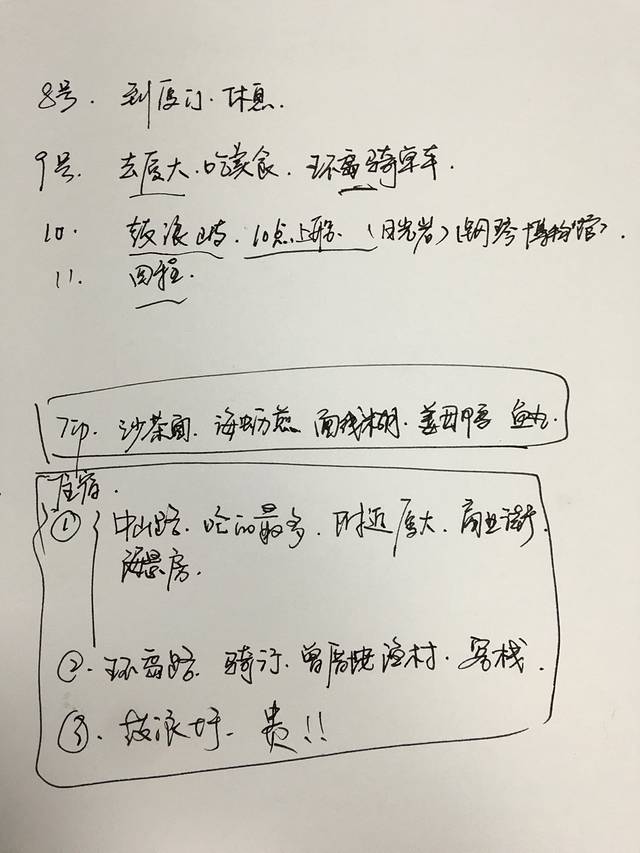 8号. 到厦门. 休息.
9号. 去厦大. 吃美食. 环岛骑单车.
10. 鼓浪屿. 10点上船. (日光岩) (钢琴博物馆)
11. 回程.
Tip. 沙茶面. 海蛎煎 面线糊. 姜母鸭 鱼丸.
住宿.
① 中山路. 吃的最多. 附近厦大. 商业街.
海景房.
②. 环岛路. 骑行. 曾厝垵渔村. 客栈.
③. 鼓浪屿. 贵!!